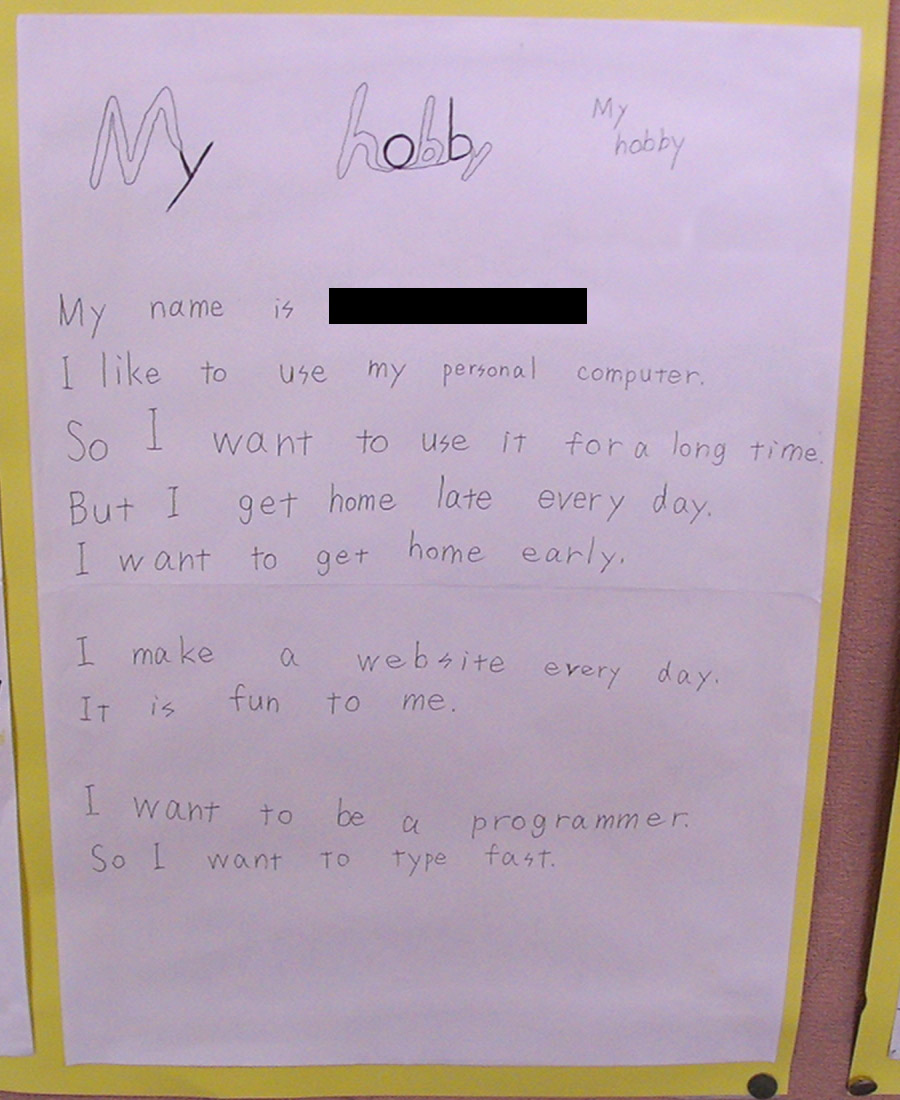 My hobby
My
hobby
My name is
I like to use my personal computer.
So I want to use it for a long time.
But I get home late every day.
I want to get home early.
I make a website every day.
It is fun to me.
I want to be a programmer.
So I want to type fast.